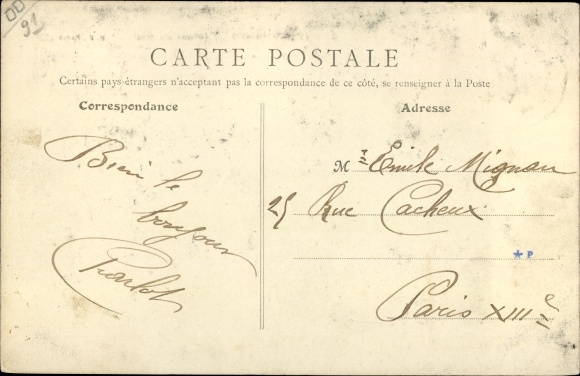 91
CARTE POSTALE
Certains pays étrangers n'acceptant pas la correspondance de ce côté, se renseigner à la Poste
Correspondance
Adresse
Bien le
bonjour
Mr Emile Mignau
25 Rue Cacheux
*P
Paris XIIIe